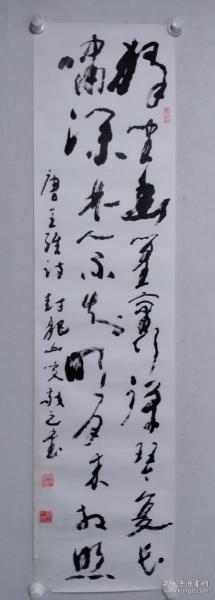 独坐幽篁里弹琴复长
啸深林人不知明月来相照
唐王维诗 封龙山